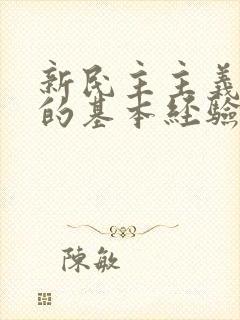 新民主主義
的基本经驗
陳敏